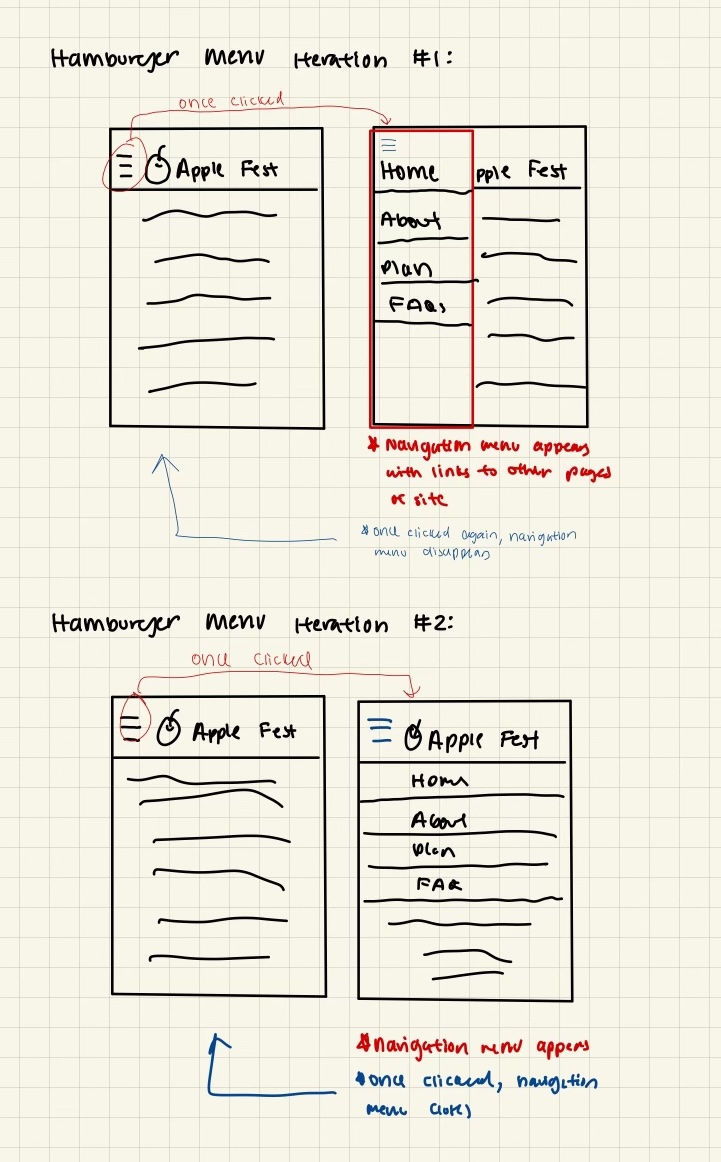 Hamburger Menu Iteration #1:
once clicked
Apple Fest
Home
pple Fest
About
Plan
FAQs
* Navigation menu appears
with links to other pages
of site
* once clicked again, navigation
menu disappears
Hamburger Menu Iteration #2:
once clicked
Apple Fest
Apple Fest
Home
About
Plan
FAQ
* Navigation menu appears
* once clicked, navigation
menu closes